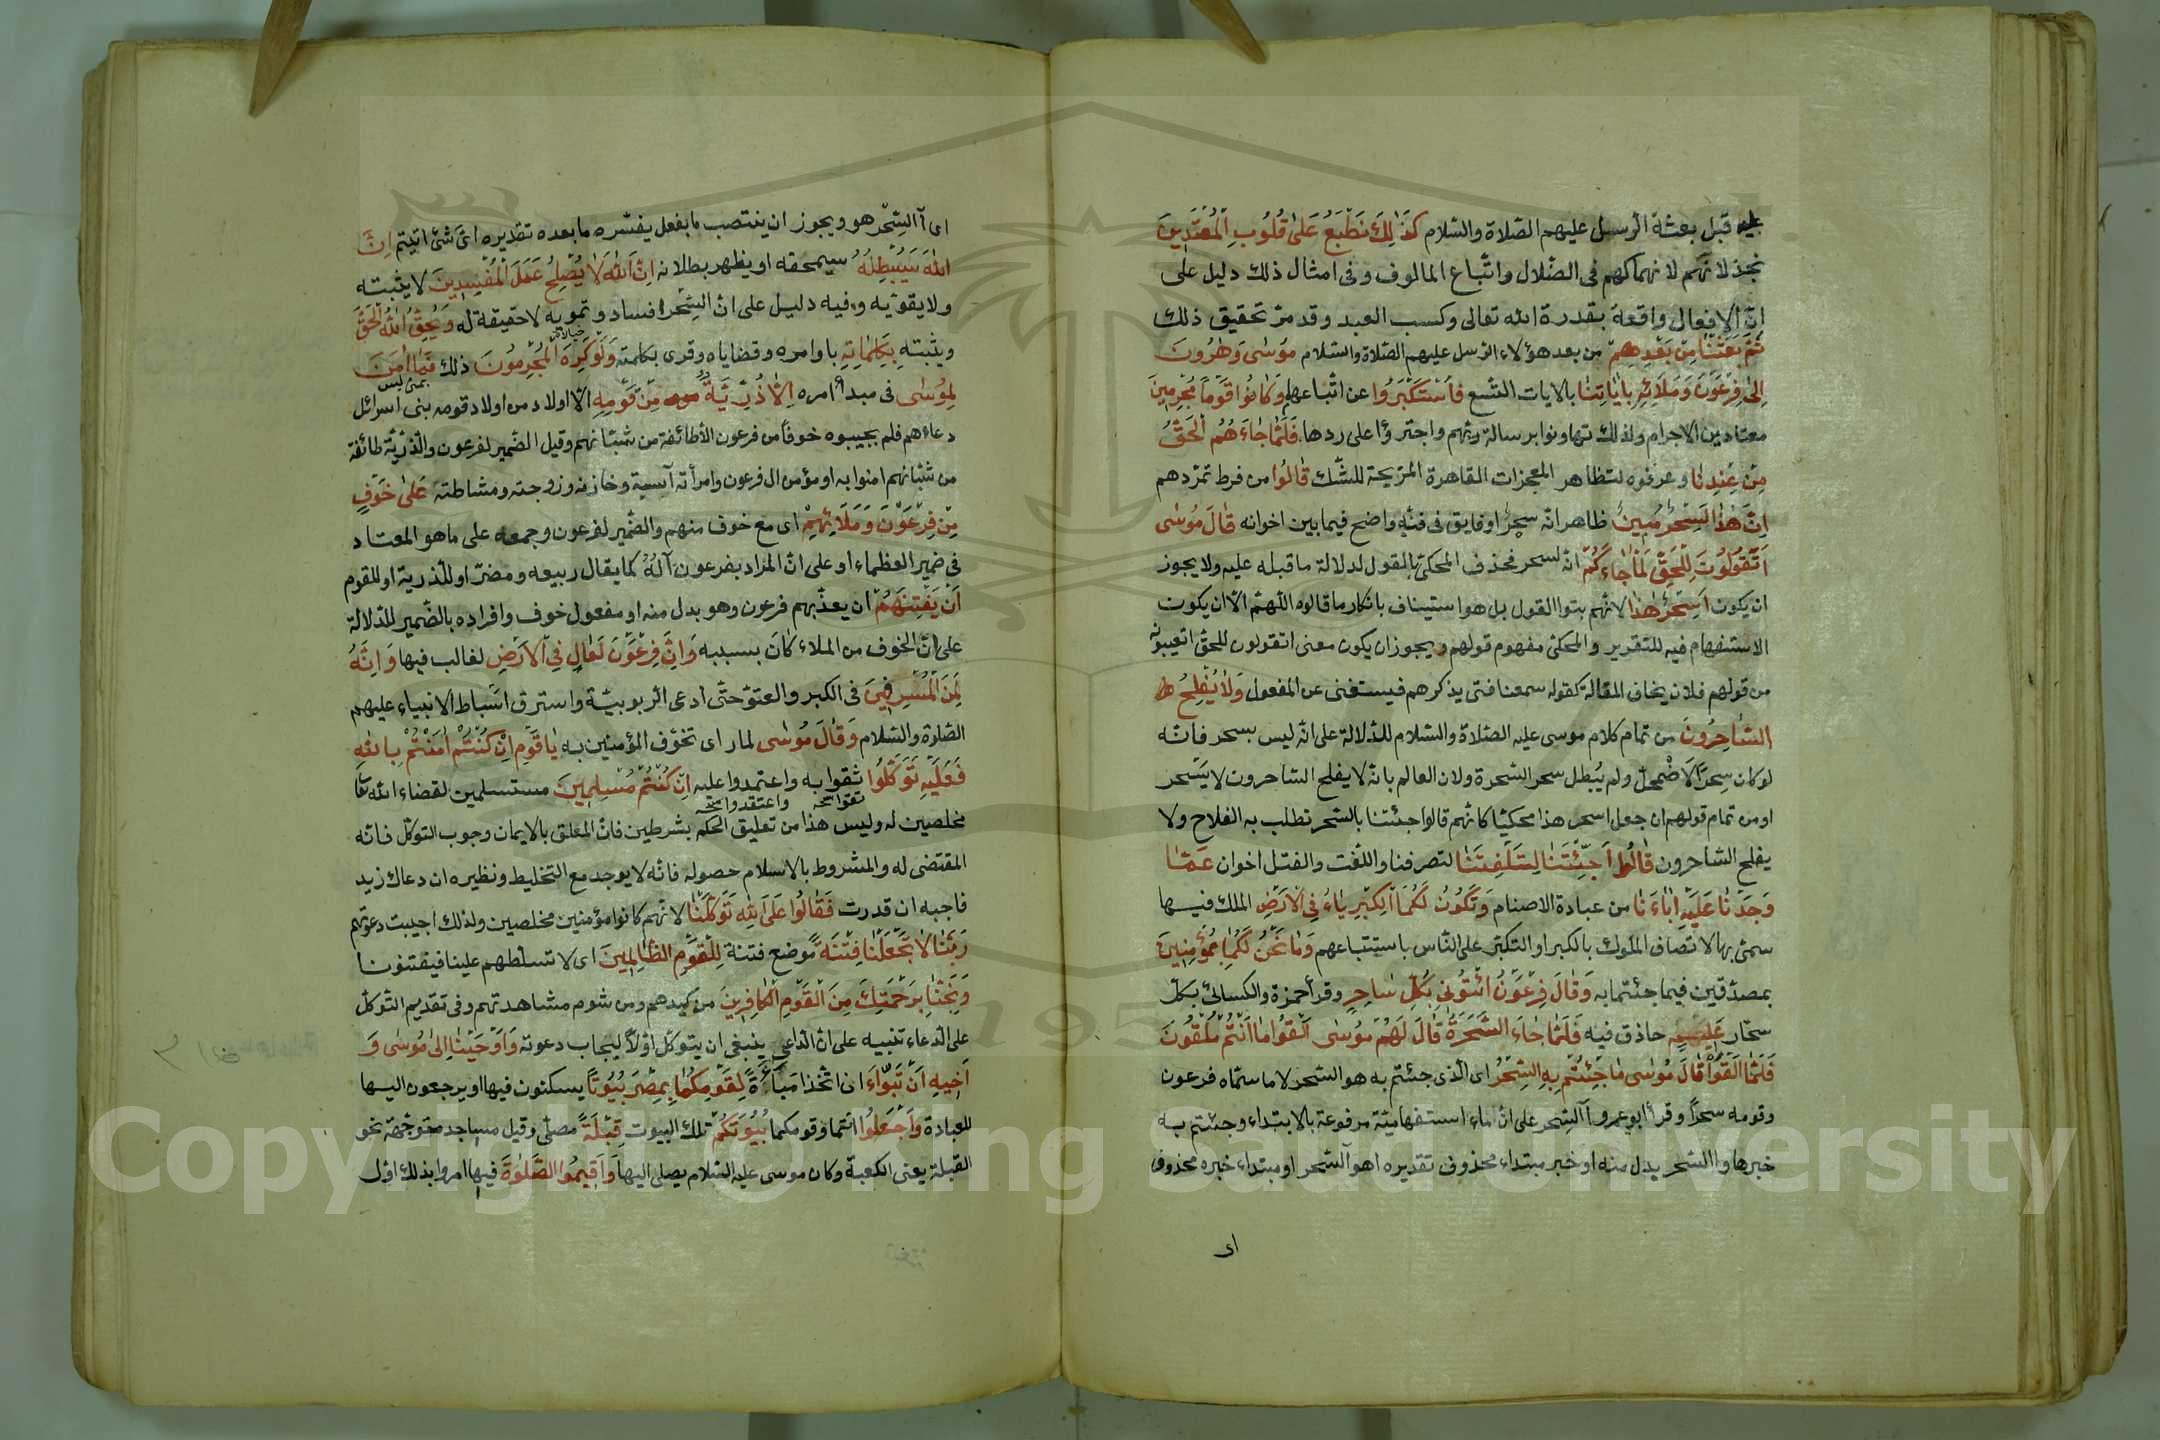 قبل بعثة الرسل عليهم الصّلاة والسّلام كَذٰلِكَ نَطْبَعُ عَلىٰ قُلُوبِ الْمُعْتَدِينَ
بخذلانهم لانهماكهم فى الضّلال واتّباع المالوف وفى امثال ذلك دليل على
انّ الافعال واقعة بقدرة الله تعالى وكسب العبد وقد مرّ تحقيق ذلك
ثُمَّ بَعَثْنَا مِنْ بَعْدِهِمْ من بعد هؤلاء الرّسل عليهم الصّلاة والسّلام مُوسٰى وَهٰرُونَ
اِلىٰ فِرْعَوْنَ وَمَلَائِهِ بِاٰيَاتِنَا بالايات التّسع فَاسْتَكْبَرُوا عن اتّباعهما وَكَانُوا قَوْماً مُجْرِمِينَ
معتادين الاجرام ولذلك تهاونوا برسالة ربّهم واجترؤا على ردها فَلَمَّا جَاءَهُمُ الْحَقُّ
مِنْ عِنْدِنَا وعرفوه لتظاهر المعجزات القاهرة المزيحة للشّك قَالُوا من فرط تمرّدهم
اِنَّ هٰذَا لَسِحْرٌ مُبِينٌ ظاهر انّه سحر او فايق فى فنّه واضح فيما بين اخوانه قَالَ مُوسٰى
اَتَقُولُونَ لِلْحَقِّ لَمَّا جَاءَكُمْ انّه لسحر فحذف المحكىّ بالمقول لدلالة ما قبله عليه ولا يجوز
ان يكون اَسِحْرٌ هٰذَا لانّهم بتوا القول بل هو استيناف بانكار ما قالوه اللّهمّ الّا ان يكون
الاستفهام فيه للتقرير والمحكىّ مفهوم قولهم ويجوز ان يكون معنى اتقولون للحقّ اتعيبونه
من قولهم فلان يخاف المقالة كقوله سمعنا فتى يذكرهم فيستغنى عن المفعول وَلَا يُفْلِحُ
السَّاحِرُونَ من تمام كلام موسى عليه الصّلاة والسّلام للدّلالة على انّه ليس بسحر فانّه
لو كان سحرًا لاضْمحلّ ولم يُبطل سحر السّحرة ولان العالم بانّه لا يفلح السّاحرون لا يسحر
او من تمام قولهم ان جعل اسحر هذا محكيّا كانّهم قالوا جئتنا بالسّحر تطلب به الفلاح ولا
يفلح السّاحرون قَالُوا اَجِئْتَنَا لِتَلْفِتَنَا لتصرفنا واللّفت والفتل اخوان عَمَّا
وَجَدْنَا عَلَيْهِ اٰبَاءَنَا من عبادة الاصنام وَتَكُونَ لَكُمَا الْكِبْرِيَاءُ فِى الْاَرْضِ الملك فيها
سمّى بها لاتّصاف الملوك بالكبر او التّكبّر على النّاس باستتباعهم وَمَا نَحْنُ لَكُمَا بِمُؤْمِنِينَ
بمصدّقين فيما جئتما به وَقَالَ فِرْعَوْنُ ائْتُونِى بِكُلِّ سَاحِرٍ وقرأ حمزة والكسائى بكلّ
سحّار عَلِيمٍ حاذق فيه فَلَمَّا جَاءَ السَّحَرَةُ قَالَ لَهُمْ مُوسٰى اَلْقُوا مَا اَنْتُمْ مُلْقُونَ
فَلَمَّا اَلْقَوْا قَالَ مُوسٰى مَا جِئْتُمْ بِهِ السِّحْرُ اى الّذى جئتم به هو السّحر لا ما سمّاه فرعون
وقومه سحرًا وقرأ ابو عمرو آلسّحر على انّ ماء استفهاميّة مرفوعة بالابتداء وجئتم به
خبرها وآلسّحر بدل منه او خبر مبتداء محذوف تقديره اهو السّحر او مبتداء خبره محذوف
اى
اى آلسّحْر هو ويجوز ان ينتصب ما بفعل يفسّره ما بعده تقديره اىّ شئ اتيتم اِنَّ
اللهَ سَيُبْطِلُهُ سيمحقه او يظهر بطلانه اِنَّ اللهَ لَا يُصْلِحُ عَمَلَ الْمُفْسِدِينَ لا يثبته
ولا يقوّيه وفيه دليل على انّ السّحر افساد وتمويه لا حقيقة له وَيُحِقُّ اللهُ الْحَقَّ
ويثبته بِكَلِمَاتِهِ باوامره وقضاياه وقرى بكلمته وَلَوْ كَرِهَ الْمُجْرِمُونَ ذلك فَمَا اٰمَنَ
لِمُوسٰى فى مبدأ امره اِلَّا ذُرِّيَّةٌ مِنْ قَوْمِهِ الّا اولاد من اولاد قومه بنى اسرائل
دعاهم فلم يجيبوه خوفاً من فرعون الّا طائفة من شبّانهم وقيل الضّمير لفرعون والذّرّيّة طائفة
من شبّانهم امنوا به او مؤمن ال فرعون وامرأته آسية وخازنه وزوجته ومشاطته عَلىٰ خَوْفٍ
مِنْ فِرْعَوْنَ وَمَلَائِهِمْ اى مع خوف منهم والضّمير لفرعون وجمعه على ما هو المعتاد
فى ضمير العظماء او على انّ المراد بفرعون آلهُ كما يقال ربيعه ومضرّ او للذرية او للقوم
اَنْ يَفْتِنَهُمْ ان يعذّبهم فرعون وهو بدل منه او مفعول خوف وافراده بالضّمير للدّلالة
على انّ الخوف من الملاء كان بسببه وَاِنَّ فِرْعَوْنَ لَعَالٍ فِى الْاَرْضِ لغالب فيها وَاِنَّهُ
لَمِنَ الْمُسْرِفِينَ فى الكبر والعتوّ حتّى ادعى الرّبوبيّة واسترق اسباط الانبياء عليهم
الصّلاة والسّلام وَقَالَ مُوسٰى لما راى تخوّف المؤمنين به يَا قَوْمِ اِنْ كُنْتُمْ اٰمَنْتُمْ بِاللهِ
فَعَلَيْهِ تَوَكَّلُوا ثقوا به واعتمدوا عليه اِنْ كُنْتُمْ مُسْلِمِينَ مستسلمين لقضاء الله
مخلصين له وليس هذا من تعليق الحكم بشرطين فانّ المعلق بالايمان وجوب التوكّل فانّه
المقتضى له والمشروط بالاسلام حصوله فانّه لا يوجد مع التخليط ونظيره ان دعاك زيد
فاجبه ان قدرت فَقَالُوا عَلَى اللهِ تَوَكَّلْنَا لانّهم كانوا مؤمنين مخلصين ولذلك اجيبت دعوتهم
رَبَّنَا لَا تَجْعَلْنَا فِتْنَةً موضع فتنة لِلْقَوْمِ الظَّالِمِينَ اى لا تسلّطهم علينا فيفتنونا
وَنَجِّنَا بِرَحْمَتِكَ مِنَ الْقَوْمِ الْكَافِرِينَ من كيدهم ومن شوم مشاهدتهم وفى تقديم التّوكّل
على الدّعاء تنبيه على انّ الدّاعى ينبغى ان يتوكّل اوّلًا ليجاب دعوته وَاَوْحَيْنَا اِلىٰ مُوسٰى وَ
اَخِيهِ اَنْ تَبَوَّاٰ ان اتّخذا مباءَةً لِقَوْمِكُمَا بِمِصْرَ بُيُوتًا يسكنون فيها او يرجعون اليها
للعبادة وَاجْعَلُوا انتما وقومكما بُيُوتَكُمْ تلك البيوت قِبْلَةً مصلّى وقيل مساجد متوجّهة نحو
القبلة يعنى الكعبة وكان موسى عليه السّلام يصلى اليها وَاَقِيمُوا الصَّلٰوةَ فيها امروا بذلك اوّل
Copyright © King Saud University